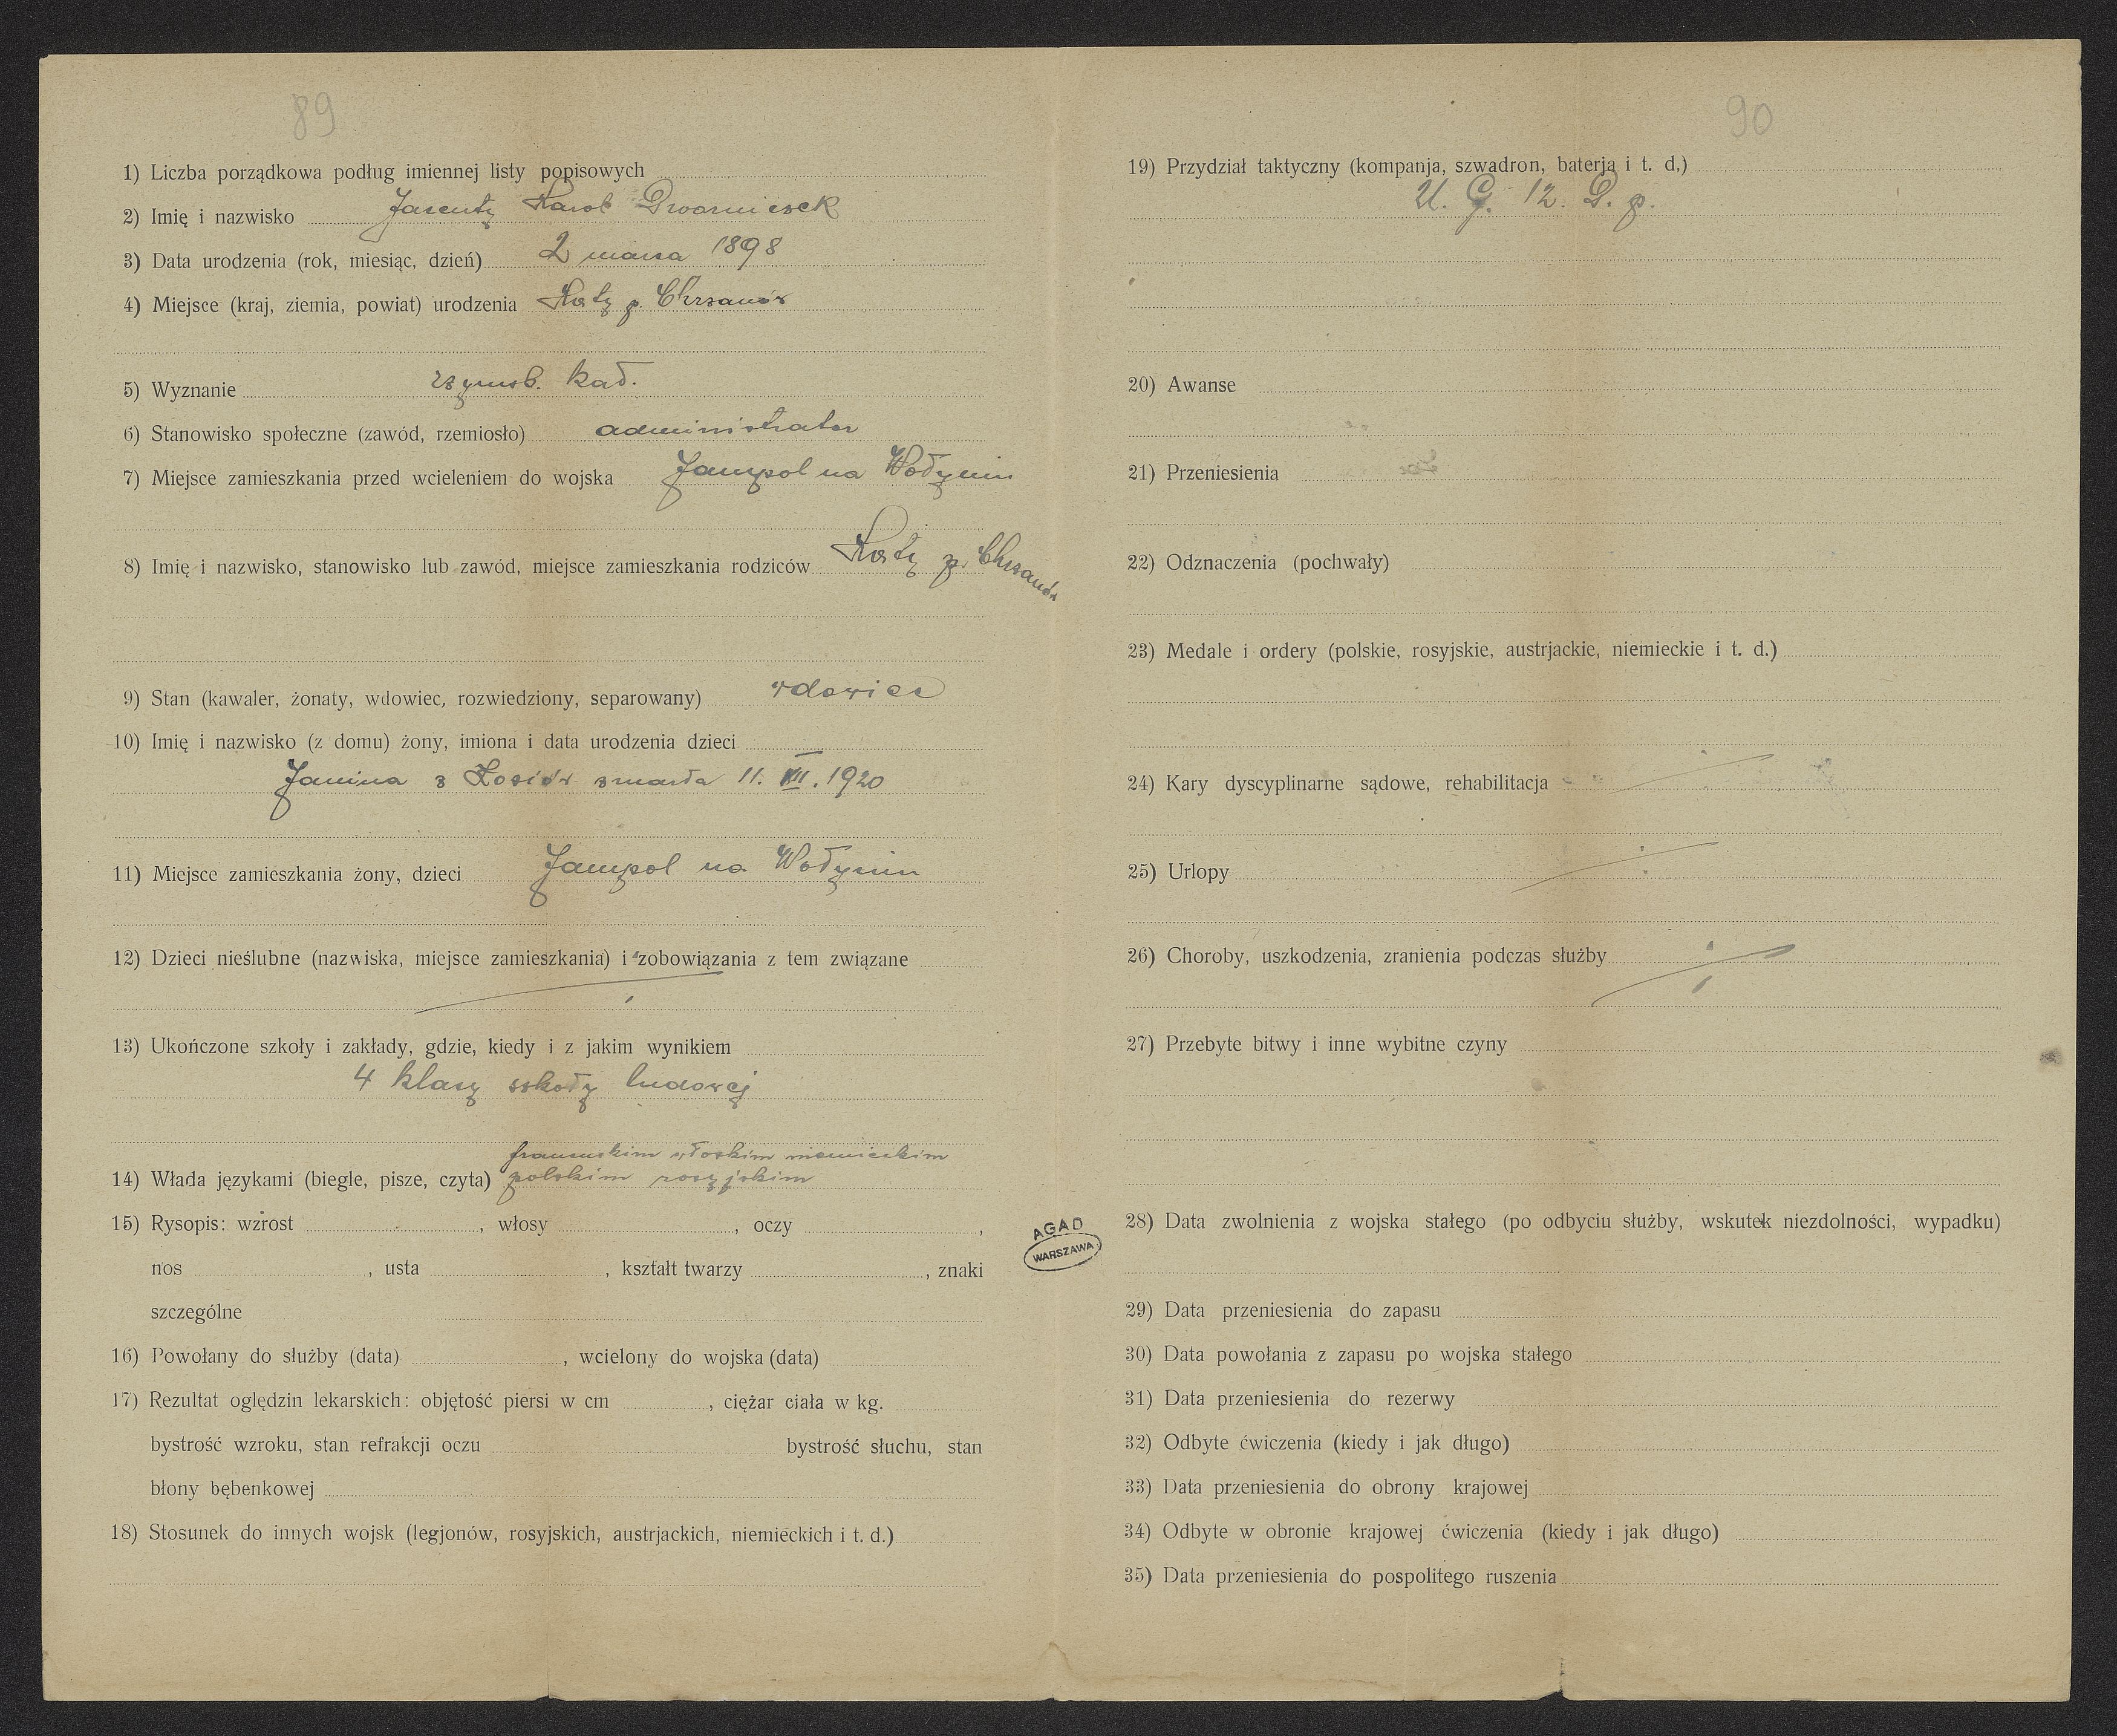 89
1) Liczba porządkowa podług imiennej listy popisowych
2) Imię i nazwisko Jacenty Karol Dworniczek
3) Data urodzenia (rok, miesiąc, dzień) 2 marca 1898
4) Miejsce (kraj, ziemia, powiat) urodzenia Kąty p. Chrzanów
5) Wyznanie rzymsk. kat.
6) Stanowisko społeczne (zawód, rzemiosło) administrator
7) Miejsce zamieszkania przed wcieleniem do wojska Jampol na Wołyniu
8) Imię i nazwisko, stanowisko lub zawód, miejsce zamieszkania rodziców Kąty p. Chrzanów
9) Stan (kawaler, żonaty, wdowiec, rozwiedziony, separowany) wdowiec
10) Imię i nazwisko (z domu) żony, imiona i data urodzenia dzieci
Janina z zmarła 11. XII. 1920
11) Miejsce zamieszkania żony, dzieci Jampol na Wołyniu
12) Dzieci nieślubne (nazwiska, miejsce zamieszkania) i zobowiązania z tem związane
13) Ukończone szkoły i zakłady, gdzie, kiedy i z jakim wynikiem
4 klasy szkoły ludowej
francuskim włoskim niemieckim
14) Włada językami (biegle, pisze, czyta) polskim rosyjskim
15) Rysopis: wzrost , włosy , oczy ,
nos , usta , kształt twarzy , znaki
szczególne
16) Powołany do służby (data) , wcielony do wojska (data)
17) Rezultat oględzin lekarskich: objętość piersi w cm , ciężar ciała w kg.
bystrość wzroku, stan refrakcji oczu bystrość słuchu, stan
błony bębenkowej
18) Stosunek do innych wojsk (legjonów, rosyjskich, austrjackich, niemieckich i t. d.)
AGAD
WARSZAWA
90
19) Przydział taktyczny (kompanja, szwadron, baterja i t. d.)
U. G. 12. D. p.
20) Awanse
21) Przeniesienia
22) Odznaczenia (pochwały)
23) Medale i ordery (polskie, rosyjskie, austrjackie, niemieckie i t. d.)
24) Kary dyscyplinarne sądowe, rehabilitacja
25) Urlopy
26) Choroby, uszkodzenia, zranienia podczas służby
27) Przebyte bitwy i inne wybitne czyny
28) Data zwolnienia z wojska stałego (po odbyciu służby, wskutek niezdolności, wypadku)
29) Data przeniesienia do zapasu
30) Data powołania z zapasu po wojska stałego
31) Data przeniesienia do rezerwy
32) Odbyte ćwiczenia (kiedy i jak długo)
33) Data przeniesienia do obrony krajowej
34) Odbyte w obronie krajowej ćwiczenia (kiedy i jak długo)
35) Data przeniesienia do pospolitego ruszenia